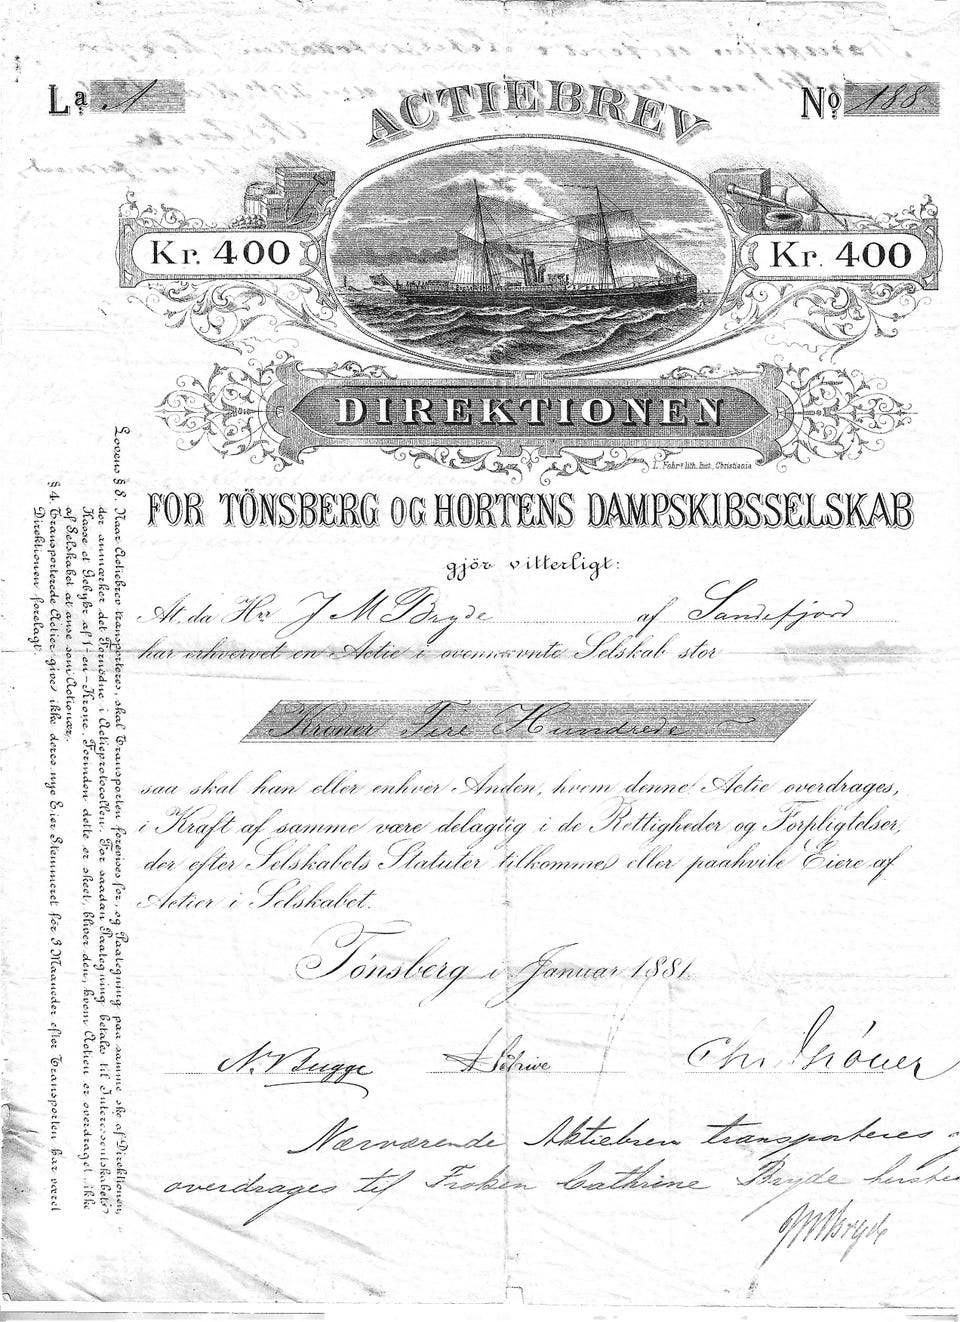 La A
ACTIEBREV
No 188.
Kr. 400
Kr. 400
DIREKTIONEN
L. Fehr's lith. Inst. Christiania
FOR TÖNSBERG OG HORTENS DAMPSKIBSSELSKAB
gjör vitterligt:
At, da Hr. J M Bryde af Sandefjord
har erhvervet en Actie i ovennævnte Selskab stor
Kroner Fire Hundrede
saa skal han eller enhver Anden, hvem denne Actie overdrages,
i Kraft af samme være delagtig i de Rettigheder og Forpligtelser,
der efter Selskabets Statuter tilkommes eller paahvile Eiere af
Actier i Selskabet.
Tönsberg i Januar 1881.
N. Bugge
Chr. Gröner
Nærværende Aktiebrev transporteres
overdrages til Frøken Cathrine Bryde
JMBryde
Lovens § 8. Naar Actiebrev transporteres, skal Transporten forevises for, og Paategning paa samme ske af Direktionen,
der anmærker det Fornødne i Actieprotocollen. For saadan Paategning betales til Interessentskabets
Kasse et Gebyhr af 1 - en - Krone. Forinden dette er skeet, bliver den, hvem Actien er overdraget ikke
af Selskabet at anse som Actionær.
§ 4. Transporterede Actier gives ikke deres nye Eier Stemmeret för 3 Maaneder efter Transporten har været
Direktionen forelagt.